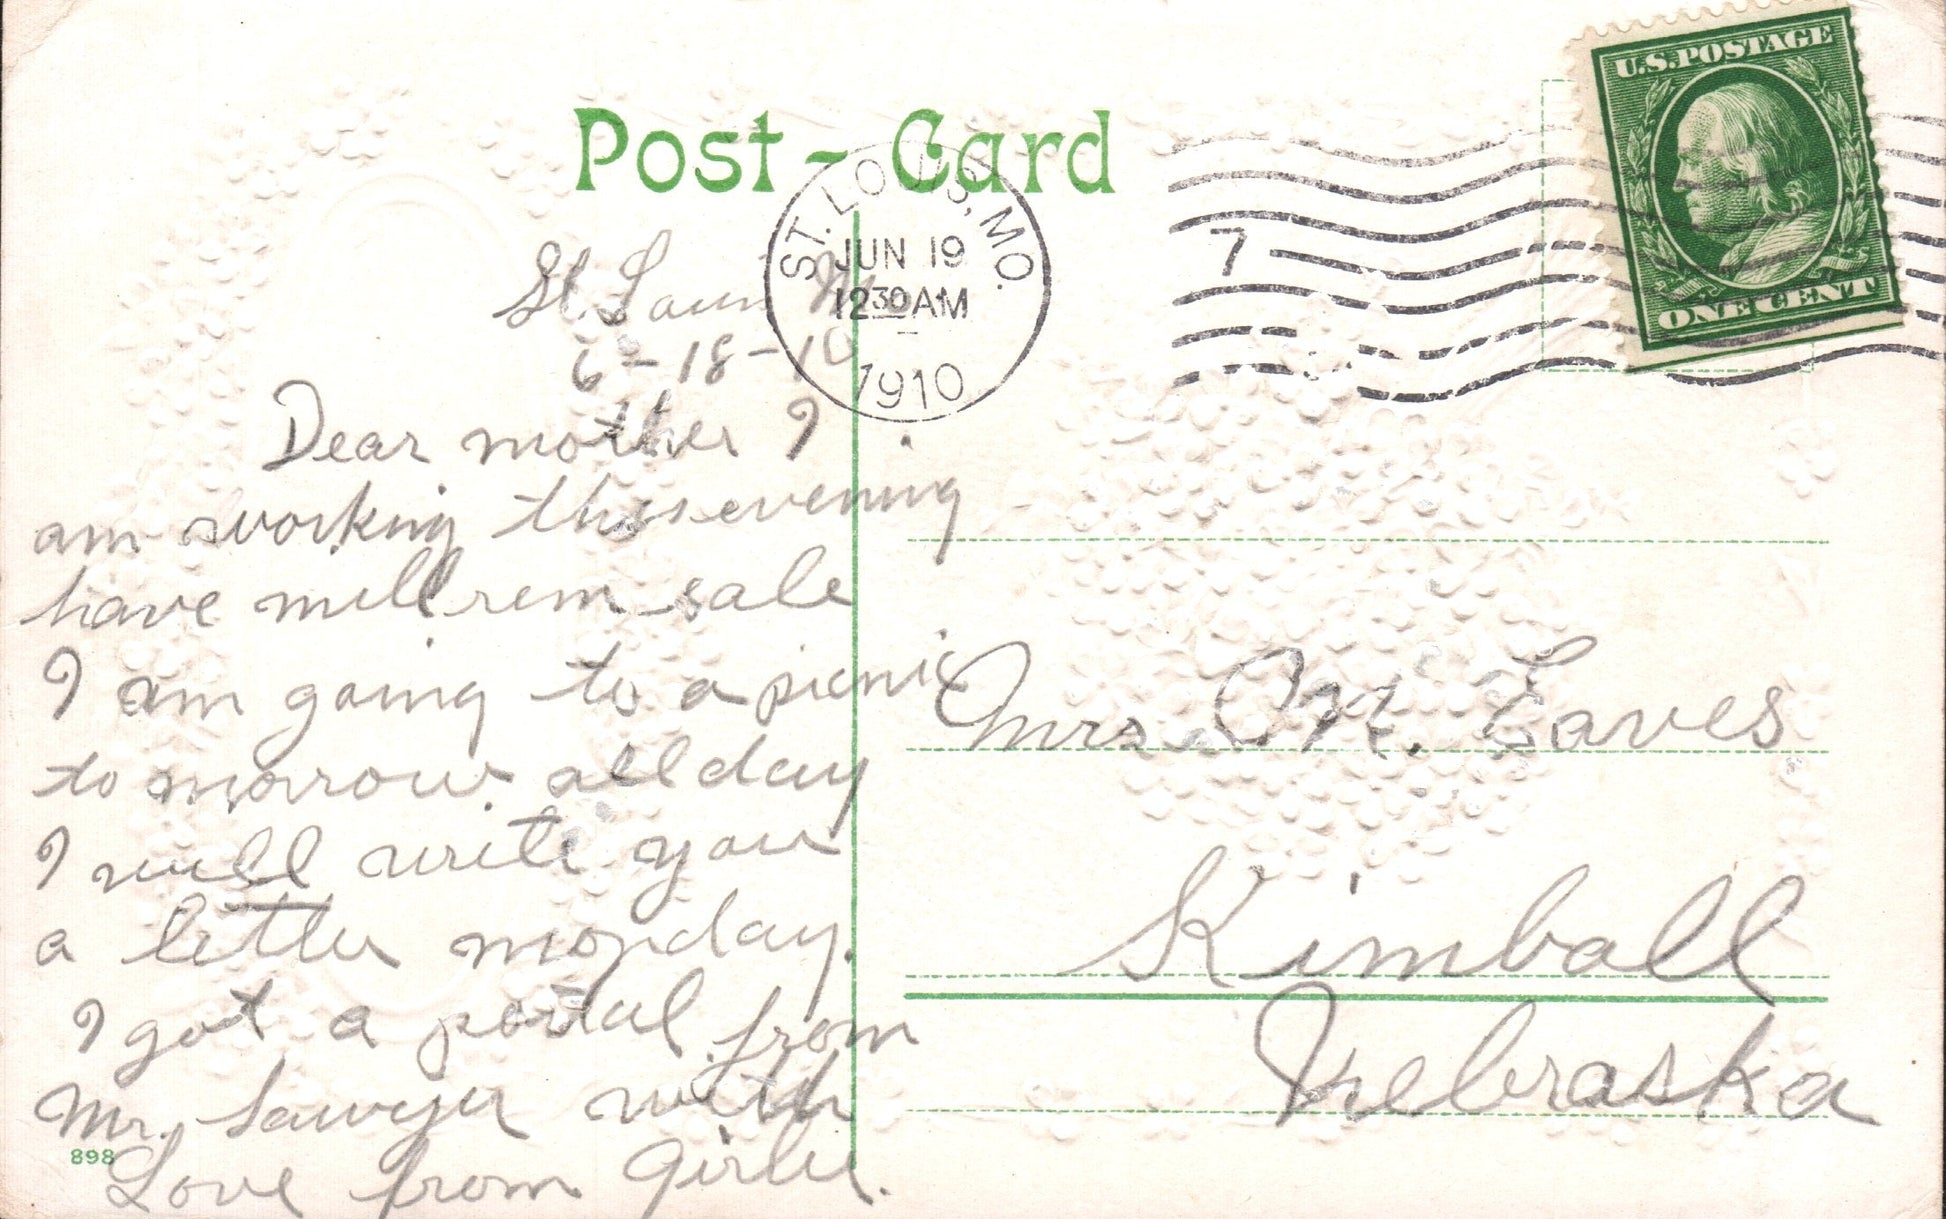 Post - Card
U.S. POSTAGE
ONE CENT
ST. LOUIS, MO.
JUN 19
12 30 AM
1910
7
St. Louis
6-18-10
Dear mother I
am working this evening
have mill rem sale
I am going to a picnic
to morrow all day
I will write you
a letter monday.
I got a postal from
Mr. Sawyer with
Love from Girlie.
Mrs. N. Eaves
Kimball
Nebraska
898